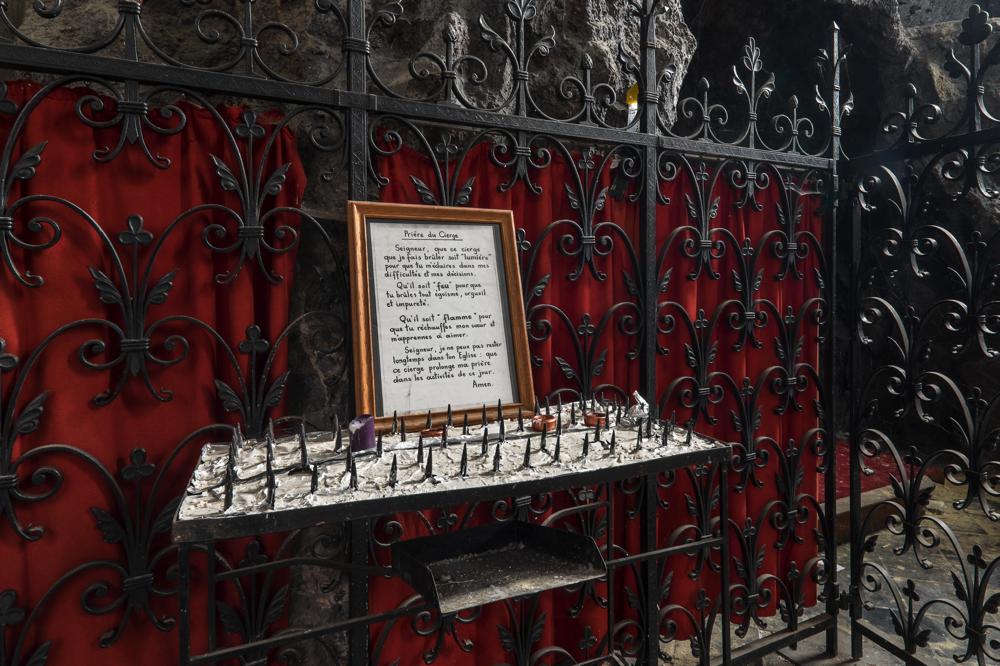 Prière du Cierge
Seigneur, que ce cierge
que je fais brûler soit "lumière"
pour que tu m'éclaires dans mes
difficultés et mes décisions.
Qu'il soit "feu" pour que
tu brûles tout égoïsme, orgueil
et impureté.
Qu'il soit "flamme" pour
que tu réchauffes mon cœur et
m'apprennes à aimer.
Seigneur, je ne peux pas rester
longtemps dans ton Eglise : que
ce cierge prolonge ma prière
dans les activités de ce jour.
Amen.